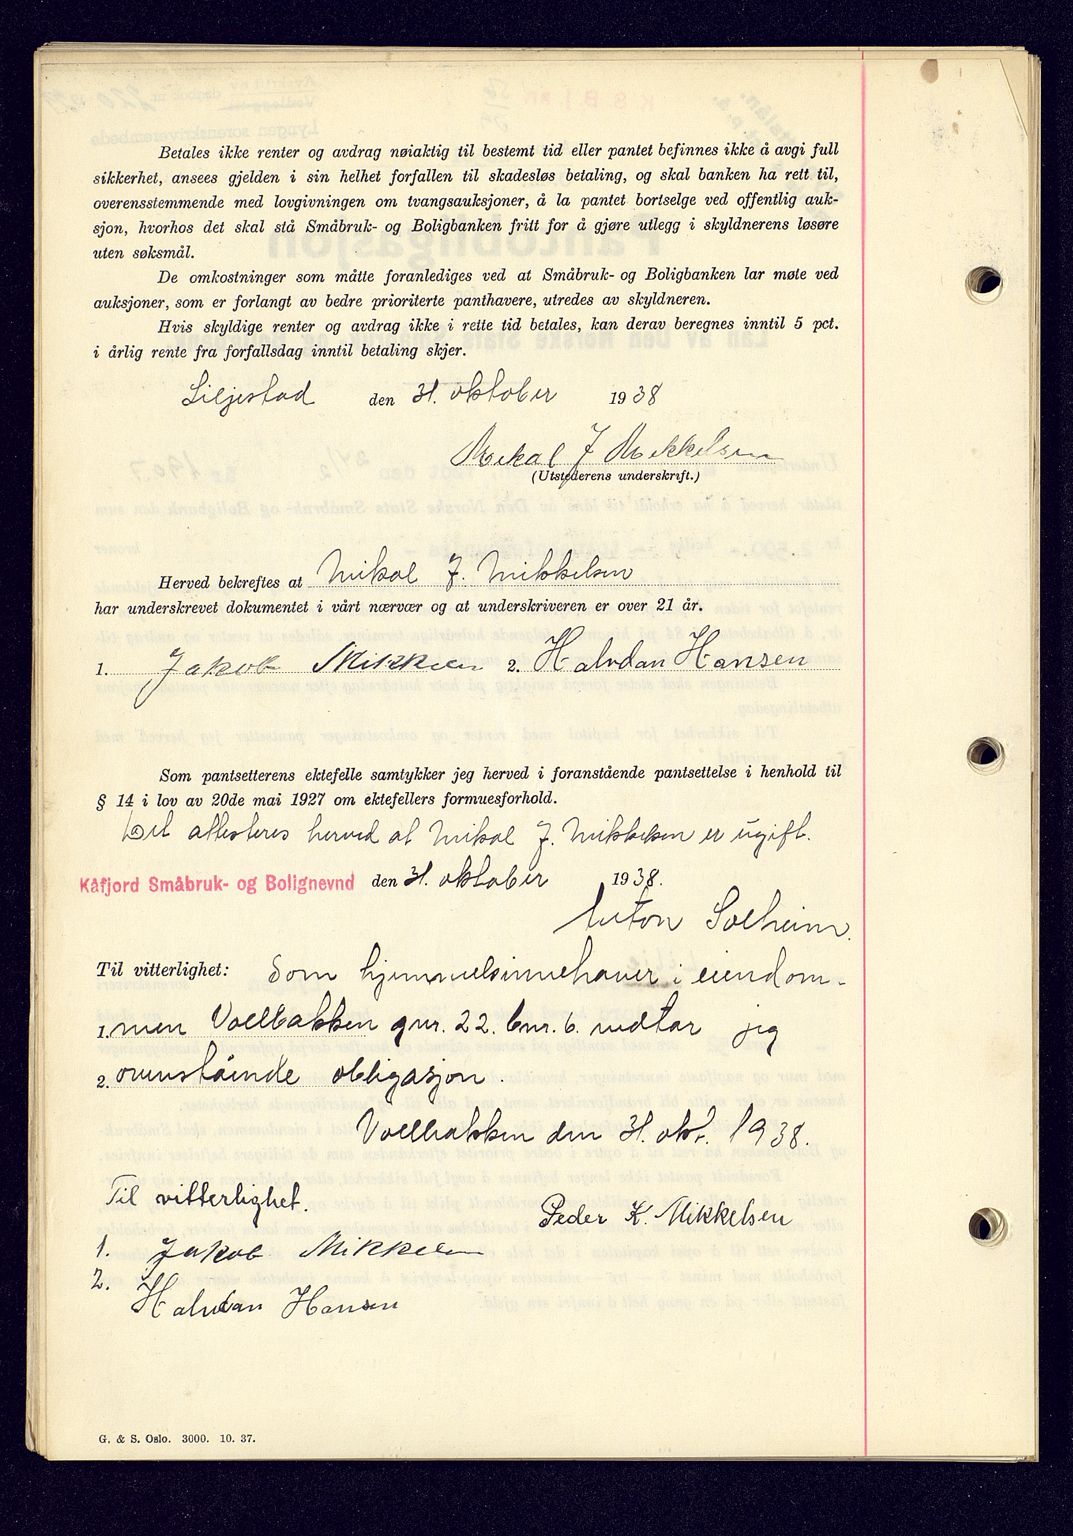 Betales ikke renter og avdrag nøiaktig til bestemt tid eller pantet befinnes ikke å avgi full
sikkerhet, ansees gjelden i sin helhet forfallen til skadesløs betaling, og skal banken ha rett til,
overensstemmende med lovgivningen om tvangsauksjoner, å la pantet bortselge ved offentlig auk-
sjon, hvorhos det skal stå Småbruk- og Boligbanken fritt for å gjøre utlegg i skyldnerens løsøre
uten søksmål.
De omkostninger som måtte foranlediges ved at Småbruk- og Boligbanken lar møte ved
auksjoner, som er forlangt av bedre prioriterte panthavere, utredes av skyldneren.
Hvis skyldige renter og avdrag ikke i rette tid betales, kan derav beregnes inntil 5 pct.
i årlig rente fra forfallsdag inntil betaling skjer.
Liljestad den 31. oktober 1938
Mekal J Mekkelsen
(Utstederens underskrift.)
Herved bekreftes at Mikal J. Mikkelsen
har underskrevet dokumentet i vårt nærvær og at underskriveren er over 21 år.
1. Jakob Mikkelsen 2. Halvdan Hansen
Som pantsetterens ektefelle samtykker jeg herved i foranstående pantsettelse i henhold til
§ 14 i lov av 20de mai 1927 om ektefellers formuesforhold.
Det attesteres herved at Mikal J. Mikkelsen er ugift.
Kåfjord Småbruk- og Bolignevnd den 31. oktober 1938.
Anton Solheim.
Til vitterlighet: Som hjemmelsinnehaver i eiendom-
1. men Voelbakken gnr. 22. bnr. 6. vedtar jeg
2. ovenstående obligasjon.
Voelbakken den 31. okt. 1938.
Til vitterlighet.
Peder K. Mikkelsen
1. Jakob Mikkelsen
2. Halvdan Hansen
G. & S. Oslo. 3000. 10. 37.